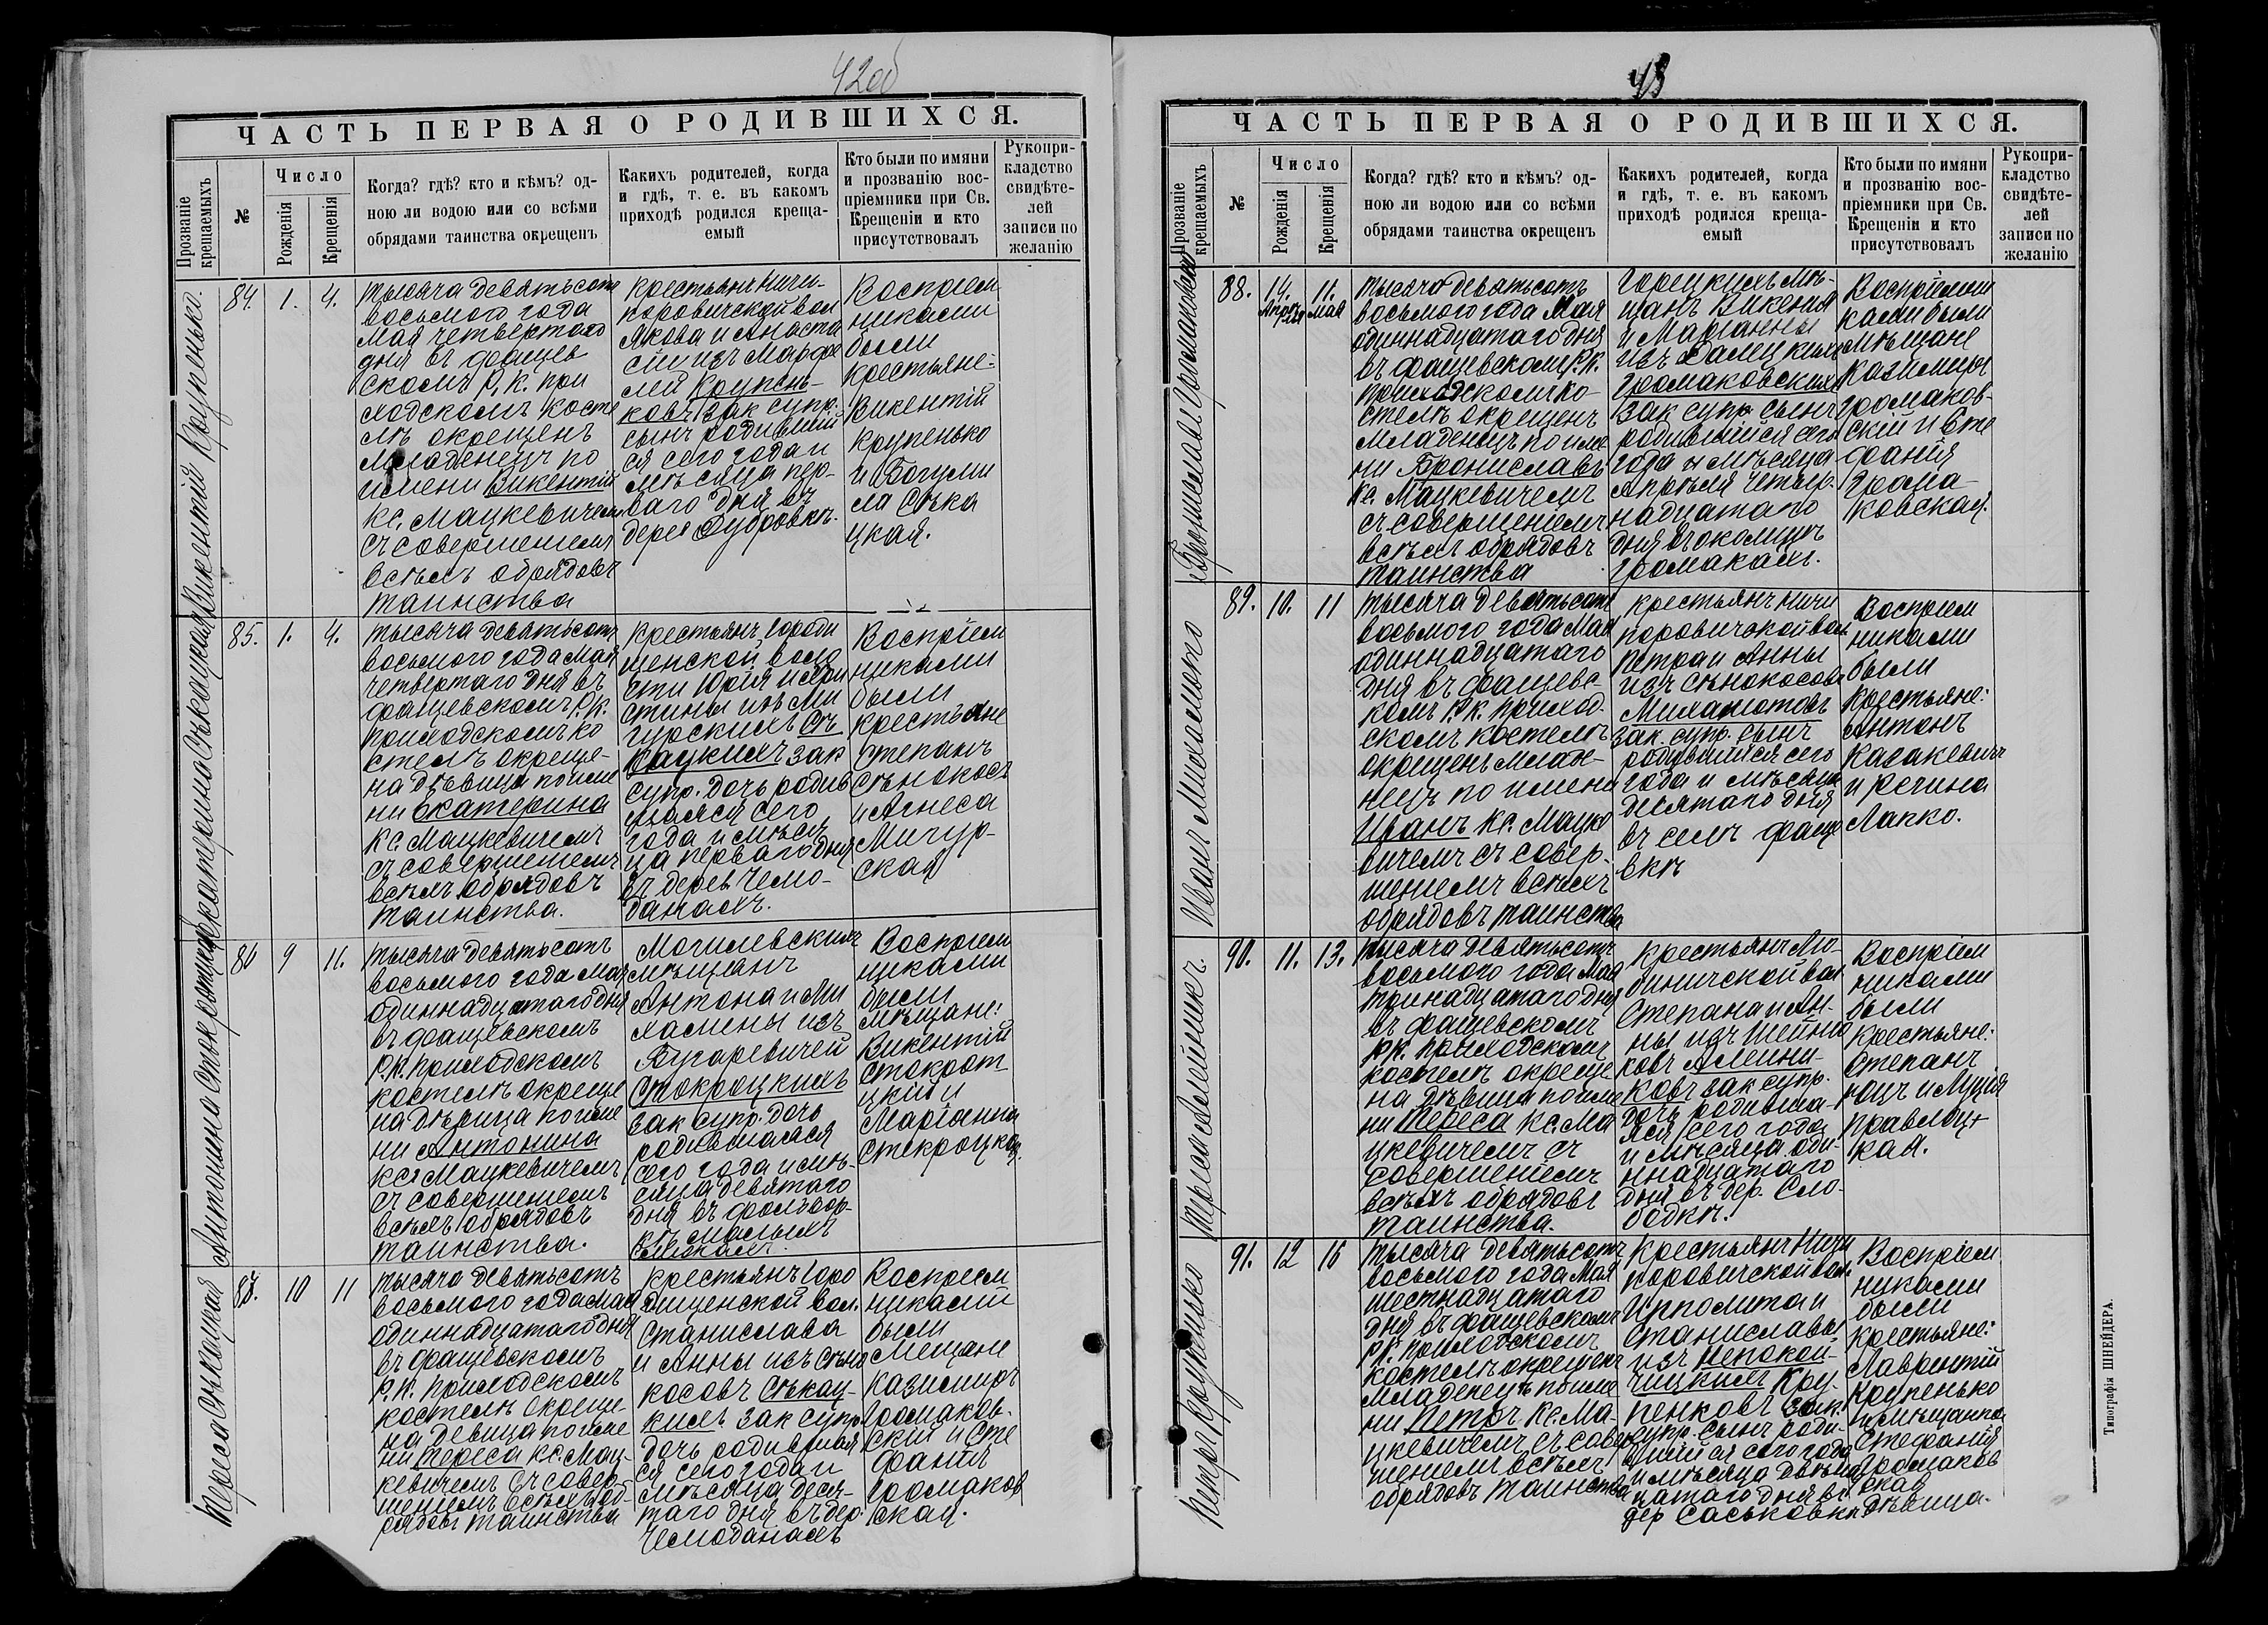 42об
ЧАСТЬ ПЕРВАЯ О РОДИВШИХСЯ.
Прозваніе крещаемыхъ
№
Число
Рожденія
Крещенія
Когда? гдѣ? кто и кѣмъ? од-
ною ли водою или со всѣми
обрядами таинства окрещенъ
Какихъ родителей, когда
и гдѣ, т. е. въ какомъ
приходѣ родился креща-
емый
Кто были по имяни
и прозванію вос-
пріемники при Св.
Крещеніи и кто
присутствовалъ
Рукопри-
кладство
свидѣте-
лей
записи по
желанію
Викентій Крупенько.
84. 1. 4.
Тысяча девятьсотъ
восьмого года
Мая четвертого
дня въ фащев
скомъ Р. К. при
ходскомъ косте
лѣ окрещенъ
младенецъ по
имени Викентій
Кс. Мацкевичемъ
съ совершеніемъ
всѣхъ обрядовъ
таинства
Крестьянъ Ничи-
поровичской вол
Якова и Анаста
сіи изъ Марфе
лей Крупень-
ковъ зак супр.
сынъ родившій
ся сего года и
мѣсяца пер-
ваго дня въ
дерев Дубровкѣ.
Воспріем
никами
были
крестьяне:
Викентій
Крупенько
и Богуми
ла Сѣка
цкая.
Екатерина Сѣкацкая
85. 1. 4.
Тысяча девятьсотъ
восьмого года Мая
четвертаго дня въ
фащевскомъ Р. К.
приходскомъ ко
стелѣ окреще-
на дѣвица по име
ни Екатерина
Кс. Мацкевичемъ
съ совершеніемъ
всѣхъ обрядовъ
таинства.
Крестьянъ Городи
щенской воло
сти Юрія и Хри
стины изъ Ми
гурскихъ Сѣ
кацкихъ зак
супр. дочь родив
шаяся сего
года и мѣся
ца перваго дня
въ дерев Чемо-
данахъ.
Воспріем
никами
были
крестьяне
Степанъ
Сѣнокосъ
и Агнеса
Мигур-
ская
Антонина Стокроцкая
86 9 11.
Тысяча девятьсотъ
восьмого года Мая
одиннадцатаго дня
въ фащевскомъ
Р. К. приходскомъ
костелѣ окреще
на дѣвица по име
ни Антонина
Кс. Мацкевичемъ
съ совершеніемъ
всѣхъ обрядовъ
таинства.
Могилевскихъ
мѣщанъ
Антона и Ми
халины изъ
Стокроцкихъ
зак супр. дочь
родившаяся
сего года и мѣ-
сяца девятаго
дня въ фольвар-
кѣ малыхъ
Воспріем
никами
были
мѣщане:
Викентій
Стокрот
цкій и
Маріанна
Стокроцкая.
Тереса Сѣкацкая
87. 10 11
Тысяча девятьсотъ
восьмого года Мая
одиннадцатаго дня
въ фащевскомъ
Р. К. приходскомъ
костелѣ окреще-
на девица по име
ни Тереса Кс. Мац-
кевичемъ съ совер-
шеніемъ всѣхъ об-
рядовъ таинства
Крестьянъ Горо
дищенской вол.
Станислава
и Анны изъ Сѣно
косовъ Сѣкац-
кихъ зак супр.
дочь родившая
ся сего года и
мѣсяца деся-
таго дня въ дер.
Чемоданахъ
Воспріем
никами
были
Мещане
Казимиръ
Громаков-
скій и Сте
фанія
Громаков
ская.
43
ЧАСТЬ ПЕРВАЯ О РОДИВШИХСЯ.
Прозваніе крещаемыхъ
№
Число
Рожденія
Крещенія
Когда? гдѣ? кто и кѣмъ? од-
ною ли водою или со всѣми
обрядами таинства окрещенъ
Какихъ родителей, когда
и гдѣ, т. е. въ какомъ
приходѣ родился креща-
емый
Кто были по имяни
и прозванію вос-
пріемники при Св.
Крещеніи и кто
присутствовалъ
Рукопри-
кладство
свидѣте-
лей
записи по
желанію
Брониславъ Громаковскій
88. 14. Апрѣля 11. мая
Тысяча девятьсотъ
восьмого года Мая
одиннадцатаго дня
въ фащевскомъ Р. К.
приходскомъ ко-
стелѣ окрещенъ
младенецъ по име
ни Брониславъ
Кс. Мацкевичемъ
съ совершеніемъ
всѣхъ обрядовъ
таинства
Горецкихъ мѣ-
щанъ Викентія
и Маріанны
изъ Галецкихъ
Громаковскихъ
зак супр сынъ
родившійся сего
года и мѣсяца
Апрѣля четыр-
надцатаго
дня въ околицѣ
Громакахъ.
Воспріемни
ками были
мѣщане
Казимиръ
Громаков-
скій и Сте
фанія
Грома-
ковская.
Иванъ Михалюто
89. 10. 11
Тысяча девятьсотъ
восьмого года Мая
одиннадцатаго
дня въ фащевс-
комъ Р. К. приход-
скомъ костелѣ
окрещенъ младе-
нецъ по имени
Иванъ Кс. Мацке
вичемъ съ совер-
шеніемъ всѣхъ
обрядовъ таинства
Крестьянъ Ничи
поровичской вол.
Петра и Анны
изъ Сѣнокосовъ
Михалютовъ
зак. супр. сынъ
родившійся сего
года и мѣсяца
десятаго дня
въ селѣ Фаще
вкѣ
Воспріем
никами
были
крестьяне:
Антонъ
Казакевичъ
и Регина
Лапко.
Тереса Алейникъ.
90. 11. 13.
Тысяча девятьсотъ
восьмого года Мая
тринадцатаго дня
въ фащевскомъ
Р. К. приходскомъ
костелѣ окреще
на дѣвица по име
ни Тереса Кс. Ма
цкевичемъ съ
совершеніемъ
всѣхъ обрядовъ
таинства.
Крестьянъ Лю-
биничской вол
Степана и Ан-
ны изъ Шейни
ковъ Алейни-
ковъ зак супр.
дочь родивша-
яся сего года
и мѣсяца оди-
ннадцатаго
дня въ дер. Сло-
бодкѣ.
Воспріем
никами
были
крестьяне:
Степанъ
Юцъ и Луція
Правлоц-
кая.
Петръ Крупенько
91. 12 16
Тысяча девятьсотъ
восьмого года Мая
шестнадцатаго
дня въ фащевскомъ
Р. К. приходскомъ
костелѣ окрещенъ
младенецъ по име
ни Петръ Кс. Ма-
цкевичемъ съ совер
шеніемъ всѣхъ
обрядовъ таинства
Крестьянъ Ничи
поровичской вол.
Ипполита и
Станиславы
изъ Непокой-
чицкихъ Кру-
пенковъ зак.
супр. сынъ роди-
вшійся сего года
и мѣсяца двѣнад
цатаго дня въ
дер Саськовкѣ
Воспріем
никами
были
крестьяне:
Лаврентій
Крупенько
и мѣщанка
Стефанія
Громаков
ская
дѣвица.
Типографія ШНЕЙДЕРА.